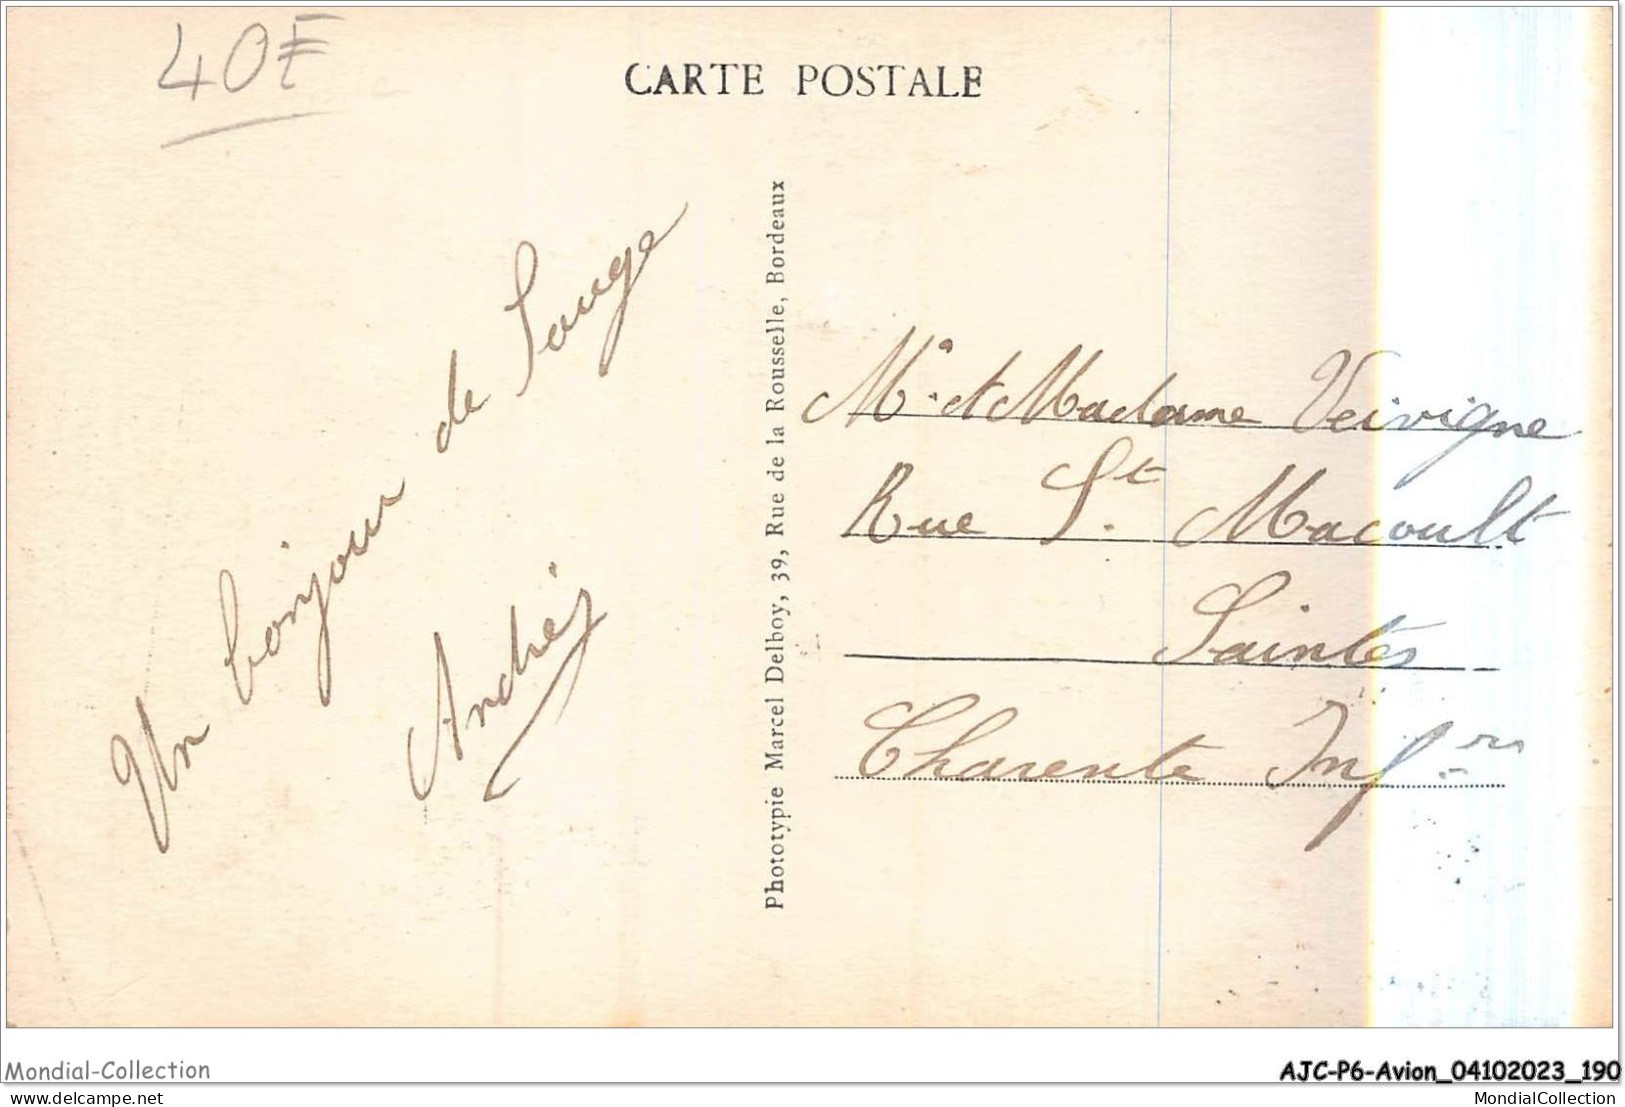 40F
CARTE POSTALE
Un bonjour de Souge
André
Photoypie Marcel Delboy, 39, Rue de la Rousselle, Bordeaux
Mr et Madame Veivigne
Rue St. Macoult
Saintes
Charente Infre
Mondial-Collection
AJC-P6-Avion_04102023_190
delcampe.net
MondialCollection